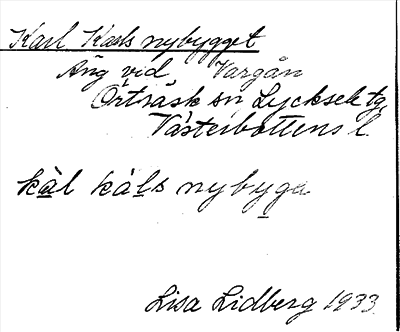 Karl Karls nybygget
Äng vid Vargån
Örträsk sn Lycksele tg
Västerbottens l.
kàl kàls nybyga
Lisa Lidberg 1933.